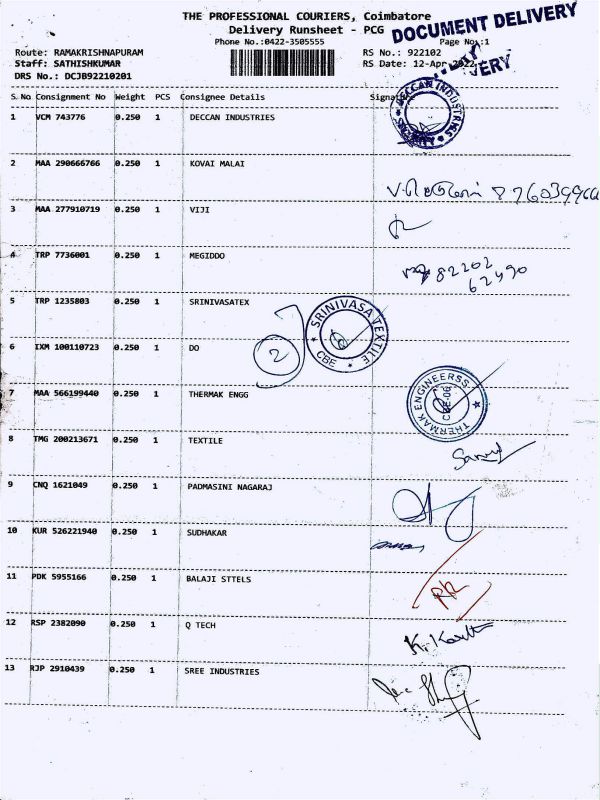 THE PROFESSIONAL COURIERS, Coimbatore
Delivery Runsheet - PCG
DOCUMENT DELIVERY
Phone No.:0422-3505555
Page No.:1
Route: RAMAKRISHNAPURAM
RS No.: 922102
Staff: SATHISHKUMAR
RS Date: 12-Apr-2022
DRS No.: DCJB92210201
S. No Consignment No Weight PCS Consignee Details
1 VCM 743776 0.250 1 DECCAN INDUSTRIES
DECCAN INDUSTRIES
2 MAA 290666766 0.250 1 KOVAI MALAI
3 MAA 277910719 0.250 1 VIJI
4 TRP 7736001 0.250 1 MEGIDDO
82202
62490
5 TRP 1235803 0.250 1 SRINIVASATEX
SRINIVASA TEXTILE
CBE
6 IXM 100110723 0.250 1 DO
2
7 MAA 566199440 0.250 1 THERMAK ENGG
THERMAK ENGINEERSS
8 TMG 200213671 0.250 1 TEXTILE
9 CNQ 1621049 0.250 1 PADMASINI NAGARAJ
10 KUR 526221940 0.250 1 SUDHAKAR
11 PDK 5955166 0.250 1 BALAJI STTELS
12 RSP 2382090 0.250 1 Q TECH
13 RJP 2910439 0.250 1 SREE INDUSTRIES